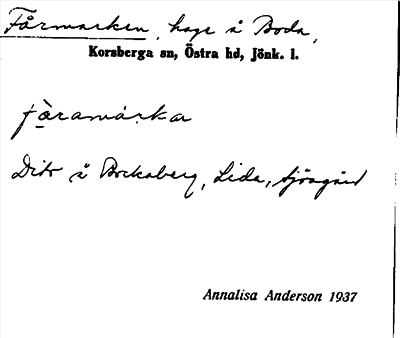 Fårmarken, hage å Boda,
Korsberga sn, Östra hd, Jönk. l.
fåramárka
Dito å Bockaberg, Lida, Sjöagärd
Annalisa Anderson 1937